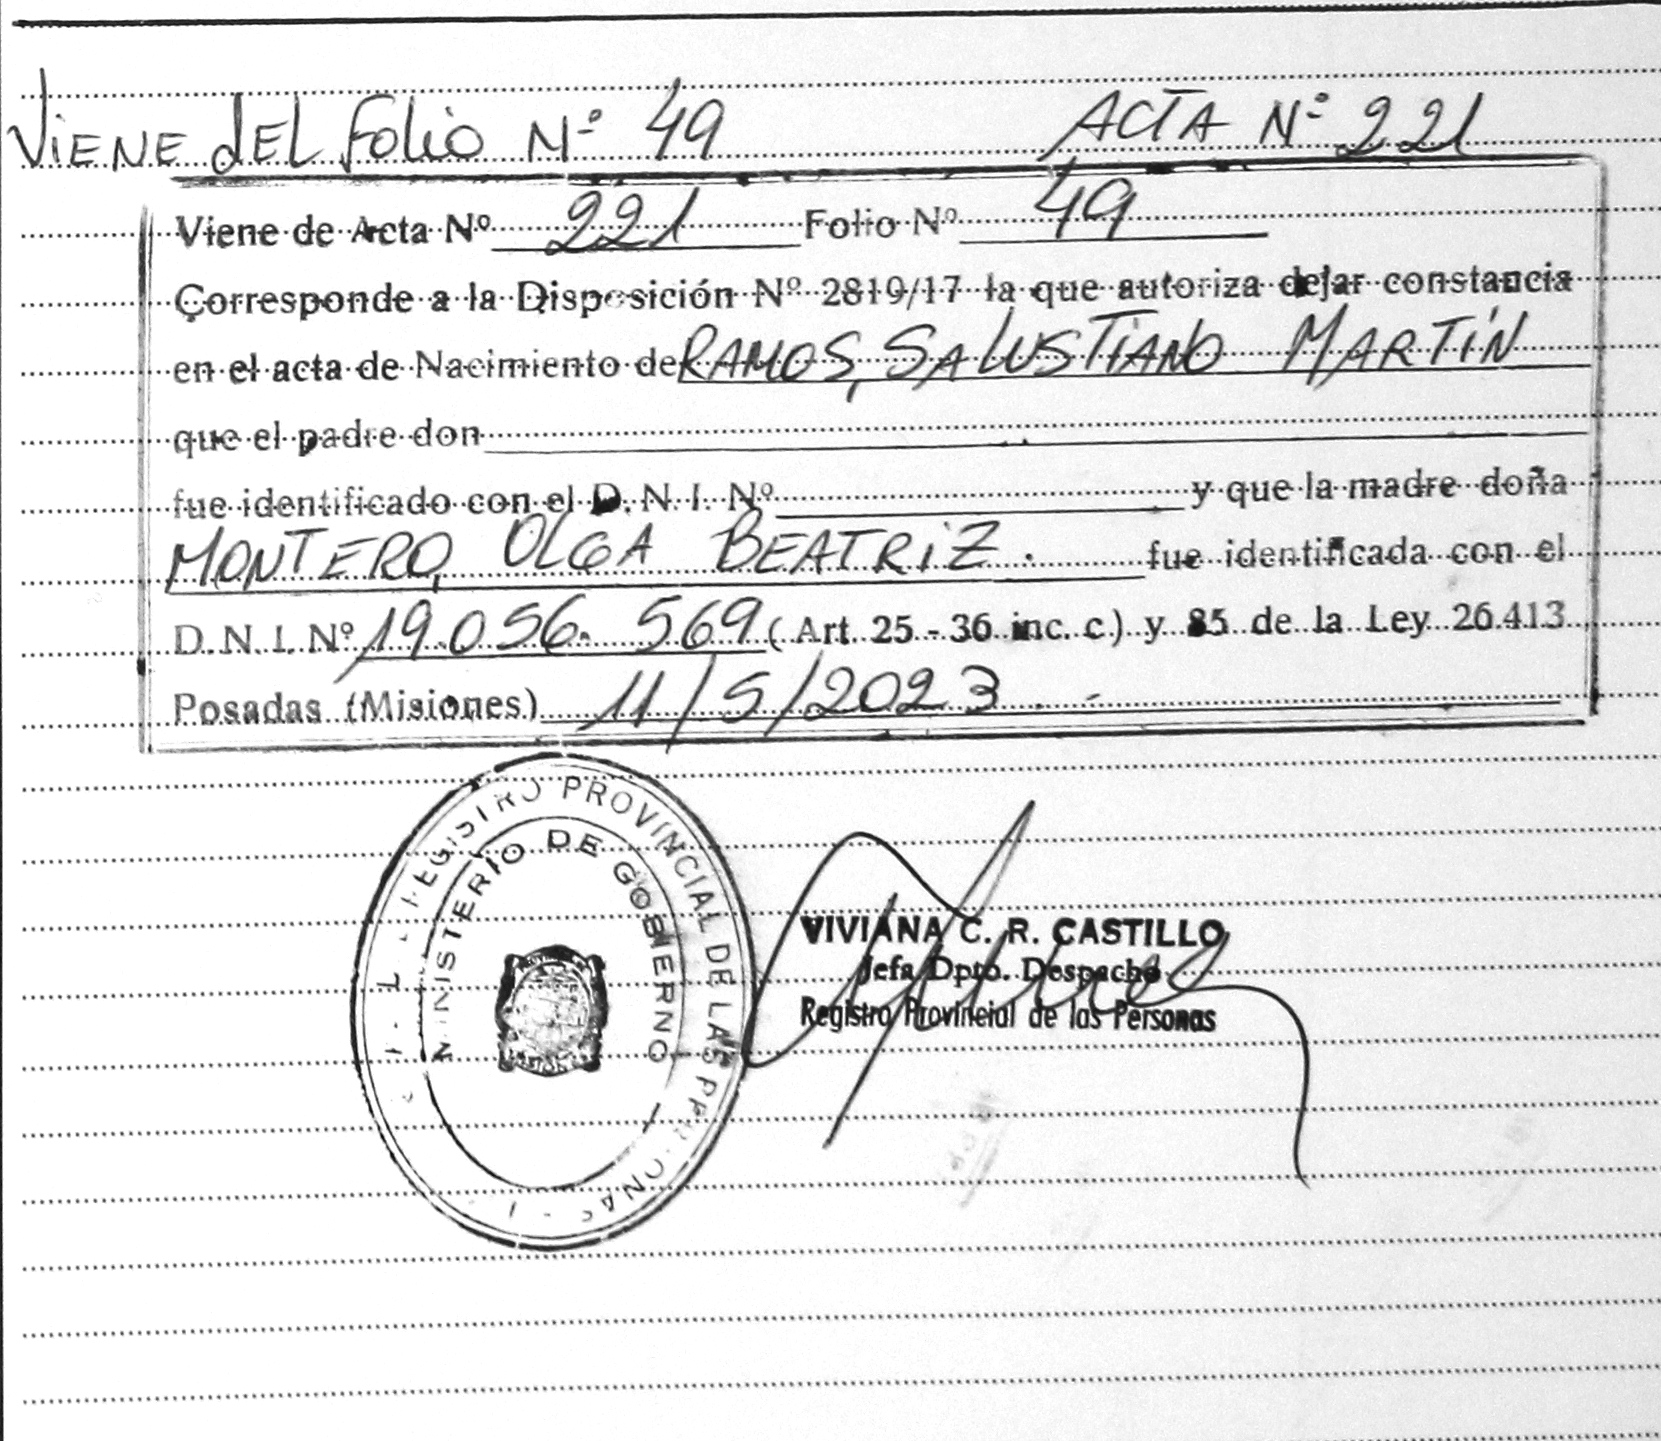 Viene del folio Nº 49 ACTA Nº 221
Viene de Acta Nº 221 Folio Nº 49
Corresponde a la Disposición Nº 2819/17 la que autoriza dejar constancia
en el acta de Nacimiento de RAMOS, SALUSTIANO MARTÍN
que el padre don
fue identificado con el D. N. I. Nº y que la madre doña
MONTERO, OLGA BEATRIZ. fue identificada con el
D. N. I. Nº 19.056.569 ( Art. 25 - 36 inc. c.) y 85 de la Ley 26.413
Posadas (Misiones) 11/5/2023 . -
REGISTRO PROVINCIAL DE LAS PERSONAS
MINISTERIO DE GOBIERNO
VIVIANA C. R. CASTILLO
Jefa Dpto. Despacho
Registro Provincial de las Personas